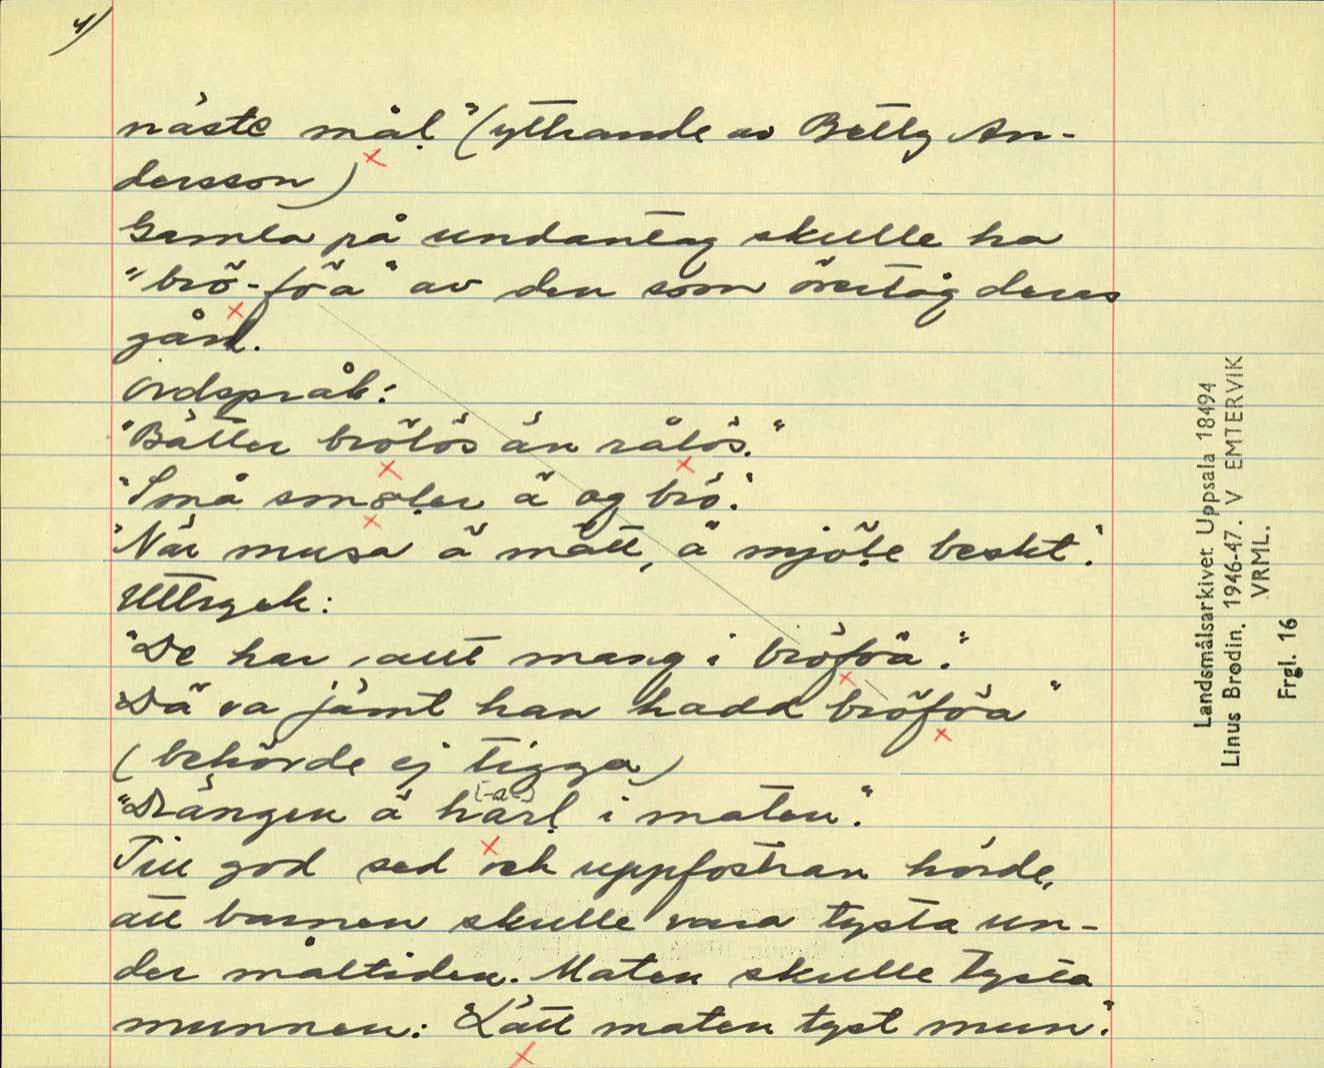 4)
näste mål." (yttrande av Betty An-
dersson)
Gamla på undantag skulle ha
"brö-föa" av den som övertog deras
gård.
Ordspråk:
"Bätter brölös än rålös."
"Små smoler ä og brö."
"När musa ä mätt, ä mjöle beskt."
Uttryck:
"De har satt mang i bröföa."
Dä va jämt han hadd bröföa"
(behövde ej tigga)
[-a-]
"Drängen ä harl i maten."
Till god sed och uppfostran hörde,
att barnen skulle vara tysta un-
der måltiden. Maten skulle tysta
munnen: "Lätt maten tyst mun."
Landsmålsarkivet Uppsala 18494
Linus Brodin. 1946-47. V EMTERVIK
VRML.
Frgl. 16